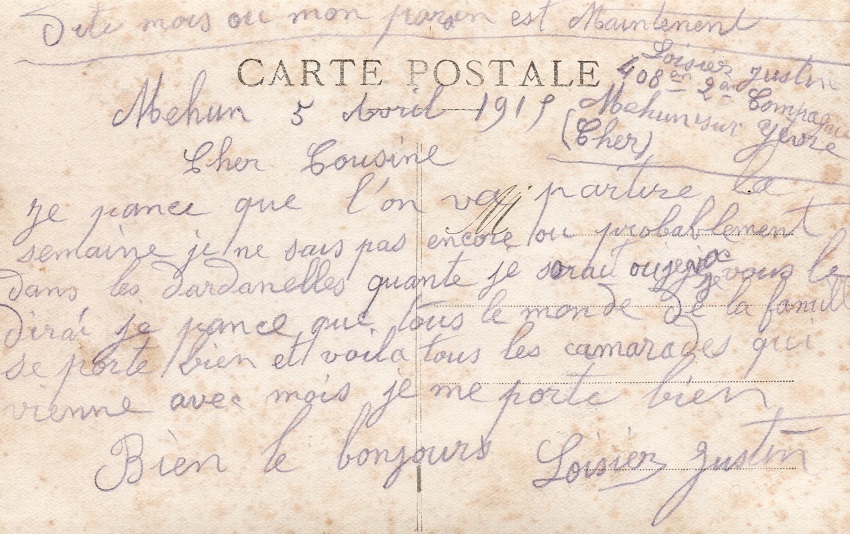 Dite mois ou mon paran est Maintenent
CARTE POSTALE
Loisier Justin
408en 2em Compagnie
Mehun sur Yevre
(Cher)
Mehun 5 Avril 1915
Cher Cousine
je pance que l'on va partire la
semaine je ne sais pas encore ou probablement
dans les dardanelles quante je sorai ou je vous le
dirai je pance que tous le monde de la famille
se porte bien et voila tous les camarades qui
vienne avec mois je me porte bien
Bien le bonjours Loisier Justin